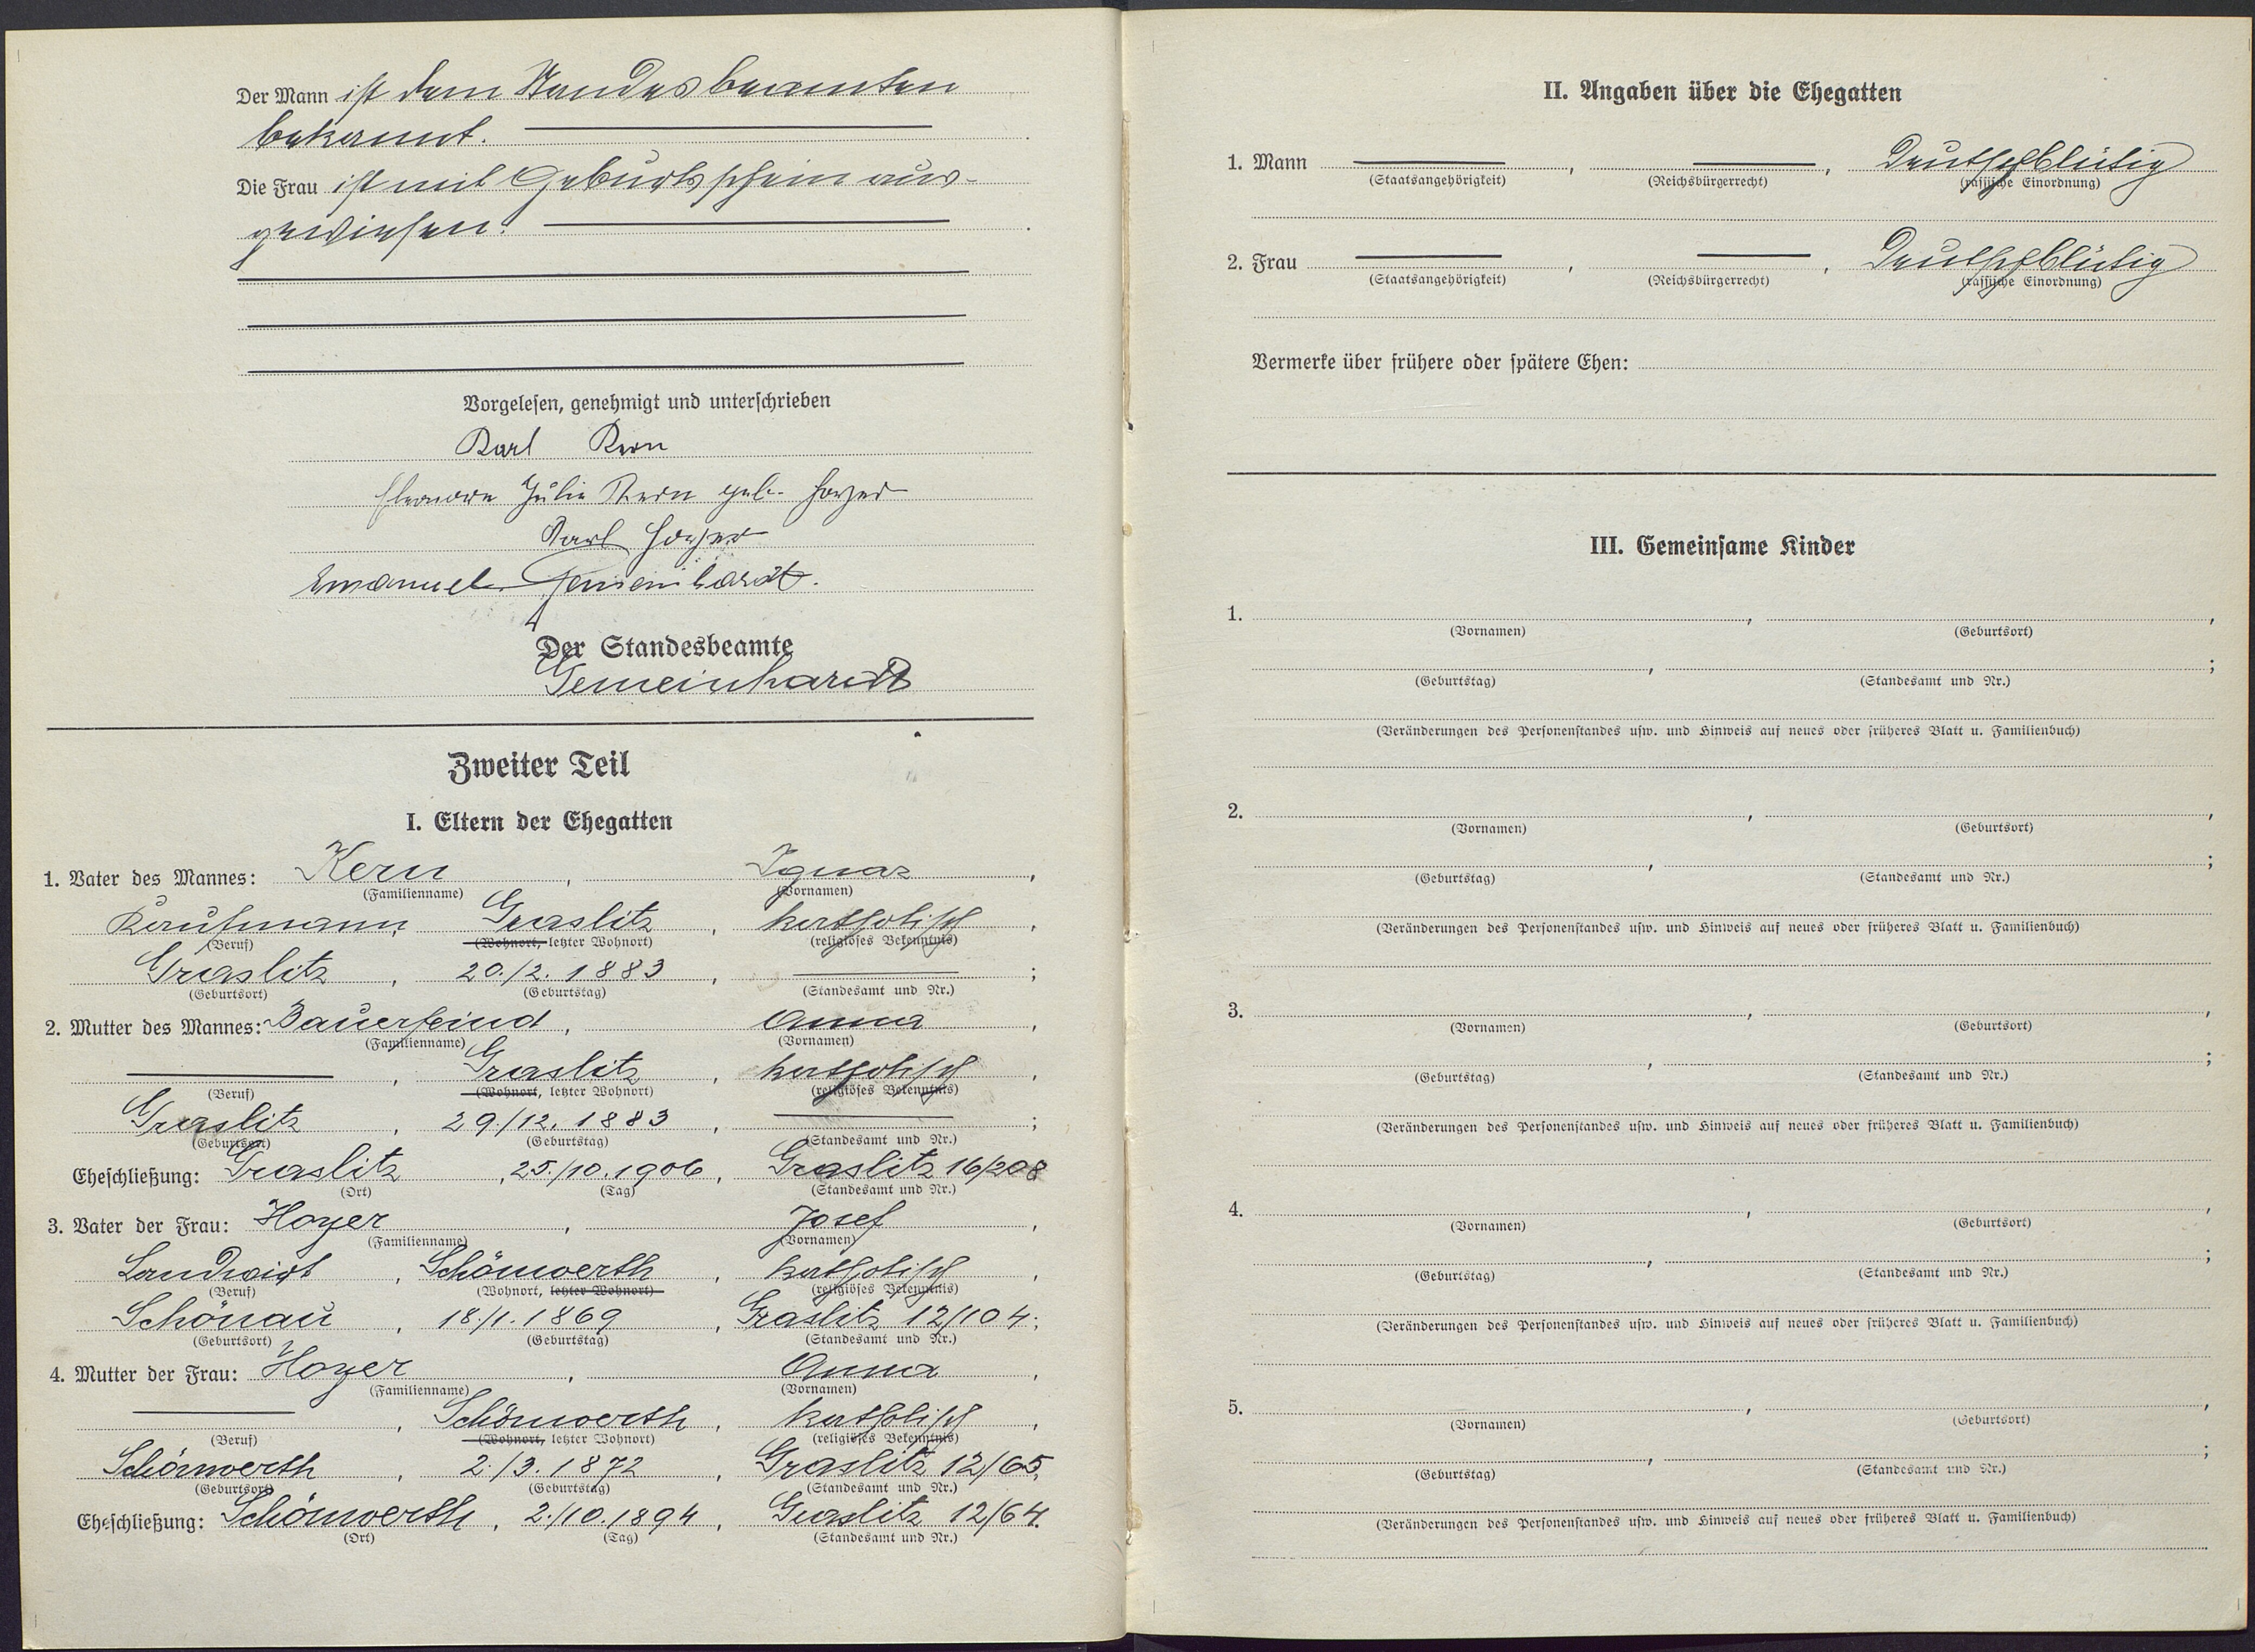 Der Mann ist dem Standesbeamten
bekannt.
Die Frau ist mit Geburtsschein aus-
gewiesen.
Vorgelesen, genehmigt und unterschrieben
Karl Kern
Eleonore Julie Kern geb. Hoyer
Karl Hoyer
Emanuel Gemeinhardt.
Der Standesbeamte
Gemeinhardt
Zweiter Teil
I. Eltern der Ehegatten
1. Vater des Mannes: Kern, Ignaz,
(Familienname) (Vornamen)
Kaufmann, Graslitz, katholisch,
(Beruf) (Wohnort, letzter Wohnort) (religiöses Bekenntnis)
Graslitz, 20./2. 1883, ;
(Geburtsort) (Geburtstag) (Standesamt und Nr.)
2. Mutter des Mannes: Bauerfeind, Anna,
(Familienname) (Vornamen)
, Graslitz, katholisch,
(Beruf) (Wohnort, letzter Wohnort) (religiöses Bekenntnis)
Graslitz, 29/12. 1883, ;
(Geburtsort) (Geburtstag) (Standesamt und Nr.)
Eheschließung: Graslitz, 25./10.1906, Graslitz 16/208
(Ort) (Tag) (Standesamt und Nr.)
3. Vater der Frau: Hoyer, Josef,
(Familienname) (Vornamen)
Landwirt, Schönwerth, katholisch,
(Beruf) (Wohnort, letzter Wohnort) (religiöses Bekenntnis)
Schönau, 18./1. 1869, Graslitz 12/104;
(Geburtsort) (Geburtstag) (Standesamt und Nr.)
4. Mutter der Frau: Hoyer, Anna,
(Familienname) (Vornamen)
, Schönwerth, katholisch,
(Beruf) (Wohnort, letzter Wohnort) (religiöses Bekenntnis)
Schönwerth, 2./3. 1872, Graslitz 12/65;
(Geburtsort) (Geburtstag) (Standesamt und Nr.)
Eheschließung: Schönwerth, 2./10.1894, Graslitz 12/64.
(Ort) (Tag) (Standesamt und Nr.)
II. Angaben über die Ehegatten
1. Mann , , Deutschblütig
(Staatsangehörigkeit) (Reichsbürgerrecht) (rassische Einordnung)
2. Frau , , Deutschblütig
(Staatsangehörigkeit) (Reichsbürgerrecht) (rassische Einordnung)
Vermerke über frühere oder spätere Ehen:
III. Gemeinsame Kinder
1. , ,
(Vornamen) (Geburtsort)
, ;
(Geburtstag) (Standesamt und Nr.)
(Veränderungen des Personenstandes usw. und Hinweis auf neues oder früheres Blatt u. Familienbuch)
2. , ,
(Vornamen) (Geburtsort)
, ;
(Geburtstag) (Standesamt und Nr.)
(Veränderungen des Personenstandes usw. und Hinweis auf neues oder früheres Blatt u. Familienbuch)
3. , ,
(Vornamen) (Geburtsort)
, ;
(Geburtstag) (Standesamt und Nr.)
(Veränderungen des Personenstandes usw. und Hinweis auf neues oder früheres Blatt u. Familienbuch)
4. , ,
(Vornamen) (Geburtsort)
, ;
(Geburtstag) (Standesamt und Nr.)
(Veränderungen des Personenstandes usw. und Hinweis auf neues oder früheres Blatt u. Familienbuch)
5. , ,
(Vornamen) (Geburtsort)
, ;
(Geburtstag) (Standesamt und Nr.)
(Veränderungen des Personenstandes usw. und Hinweis auf neues oder früheres Blatt u. Familienbuch)